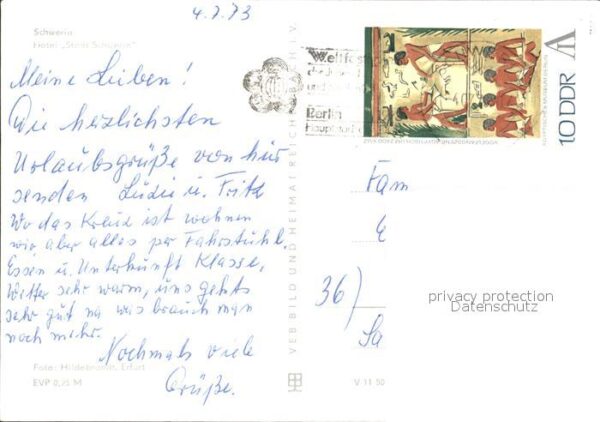 4.7.73
Schwerin
Hotel "Stadt Schwerin"
Meine Lieben!
Die herzlichsten
Urlaubsgrüße von hier
senden Lüdie u. Fritz
Wo das Kreuz ist wohnen
wir aber alles per Fahrstuhl,
Essen u. Unterkunft Klasse,
Wetter sehr warm, uns gehts
sehr gut na was brauch man
noch mehr.
Nochmals viele
Grüße.
Foto: Hildebrandt, Erfurt
EVP 0,25 M
VEB BILD UND HEIMAT REICHENBACH I. V.
V 11 50
Weltfest
der Jugend
und
Berlin
Hauptstadt
10 DDR
Fam
E
36)
Sa
privacy protection
Datenschutz